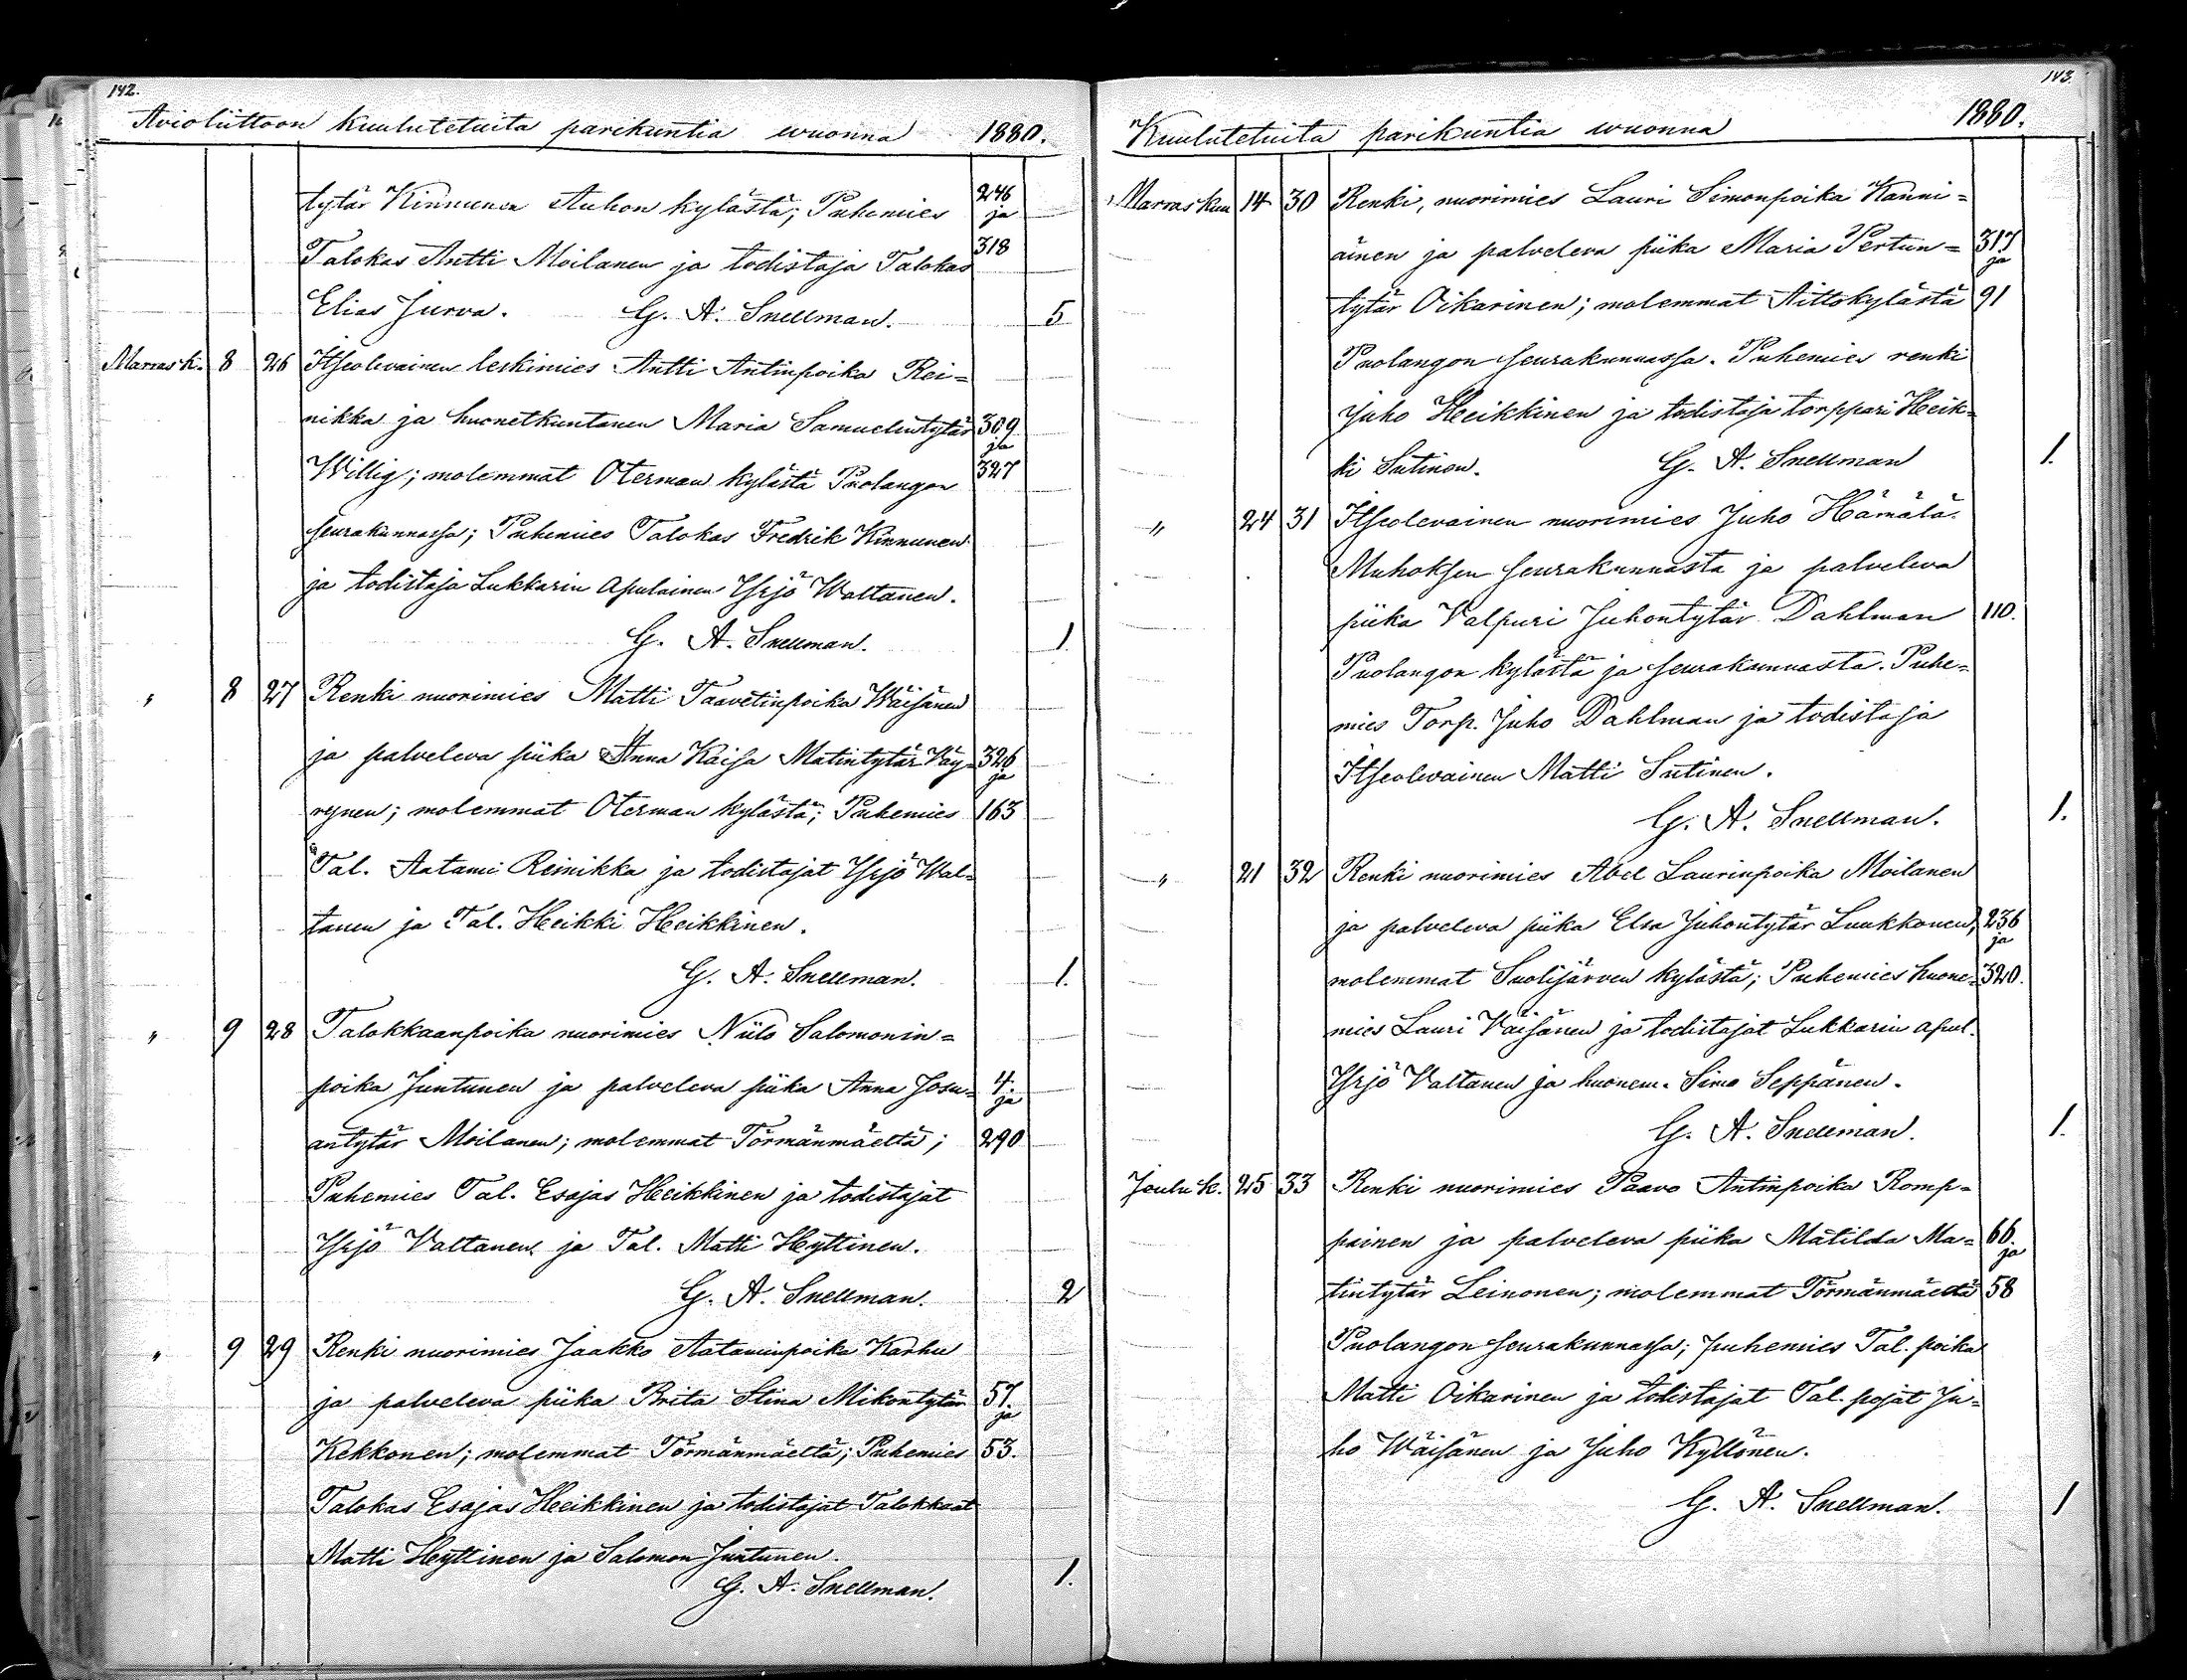 142.
Avioliittoon kuulutetuita parikuntia wuonna 1880.
tytär Kinnunen Auhon kylästä; Puhemies 246 ja
Talokas Antti Moilanen ja todistaja Talokas 318
Elias Jurva. G. A. Snellman. 5
Marrask. 8 26 Itseolevainen leskimies Antti Antinpoika Rei=
nikka ja huonetkuntanen Maria Samuelintytär 309 ja
Willig; molemmat Oterman kylästä Puolangon 327
seurakunnassa; Puhemies Talokas Fredrik Kinnunen
ja todistaja Lukkarin apulainen Yrjö Waltanen.
G. A. Snellman. 1
" 8 27 Renki nuorimies Matti Taavetinpoika Wäisänen
ja palveleva piika Anna Kaisa Matintytär Väy= 326 ja
rynen; molemmat Oterman kylästä; Puhemies 163
Tal. Aatami Reinikka ja todistajat Yrjö Wal=
tanen ja Tal. Heikki Heikkinen.
G. A. Snellman. 1.
" 9 28 Talokkaanpoika nuorimies Niilo Salomonin=
poika Juntunen ja palveleva piika Anna Josu= 4. ja
antytär Moilanen; molemmat Törmänmäeltä; 290
Puhemies Tal. Esajas Heikkinen ja todistajat
Yrjö Valtanen ja Tal. Matti Hyttinen.
G. A. Snellman. 2
" 9 29 Renki nuorimies Jaakko Aataminpoika Karhu
ja palveleva piika Brita Stina Mikontytär 57. ja
Kekkonen; molemmat Törmänmäeltä; Puhemies 53.
Talokas Esajas Heikkinen ja todistajat Talokkaat
Matti Heyttinen ja Salomon Juntunen.
G. A. Snellman. 1.
143.
Kuulutetuita parikuntia wuonna 1880.
Marraskuu 14 30 Renki, nuorimies Lauri Simonpoika Kanni=
ainen ja palveleva piika Maria Pertun= 317 ja
tytär Oikarinen; molemmat Aittokylästä 91
Puolangon seurakunnassa. Puhemies renki
Juho Heikkinen ja todistaja torppari Heik=
ki Sutinen. G. A. Snellman 1.
" 24 31 Itseolevainen nuorimies Juho Hämälä.
Muhoksen seurakunnasta ja palveleva
piika Valpuri Juhontytär Dahlman 110.
Puolangon kylästä ja seurakunnasta. Puhe=
mies Torp. Juho Dahlman ja todistaja
Itseolevainen Matti Sutinen.
G. A. Snellman. 1.
" 21 32 Renki nuorimies Abel Laurinpoika Moilanen
ja palveleva piika Elsa Juhontytär Luukkonen; 236 ja
molemmat Suolijärven kylästä; Puhemies huone= 320.
mies Lauri Väisänen ja todistajat Lukkarin apul.
Yrjö Valtanen ja huonem. Simo Seppänen.
G. A. Snellman. 1.
Jouluk. 25 33 Renki nuorimies Paavo Antinpoika Romp=
painen ja palveleva piika Matilda Ma= 66. ja
tintytär Leinonen; molemmat Törmänmäeltä 58
Puolangon seurakunnassa; puhemies Tal. poika
Matti Oikarinen ja todistajat Tal. pojat Ju=
ho Wäisänen ja Juho Kyllönen.
G. A. Snellman. 1